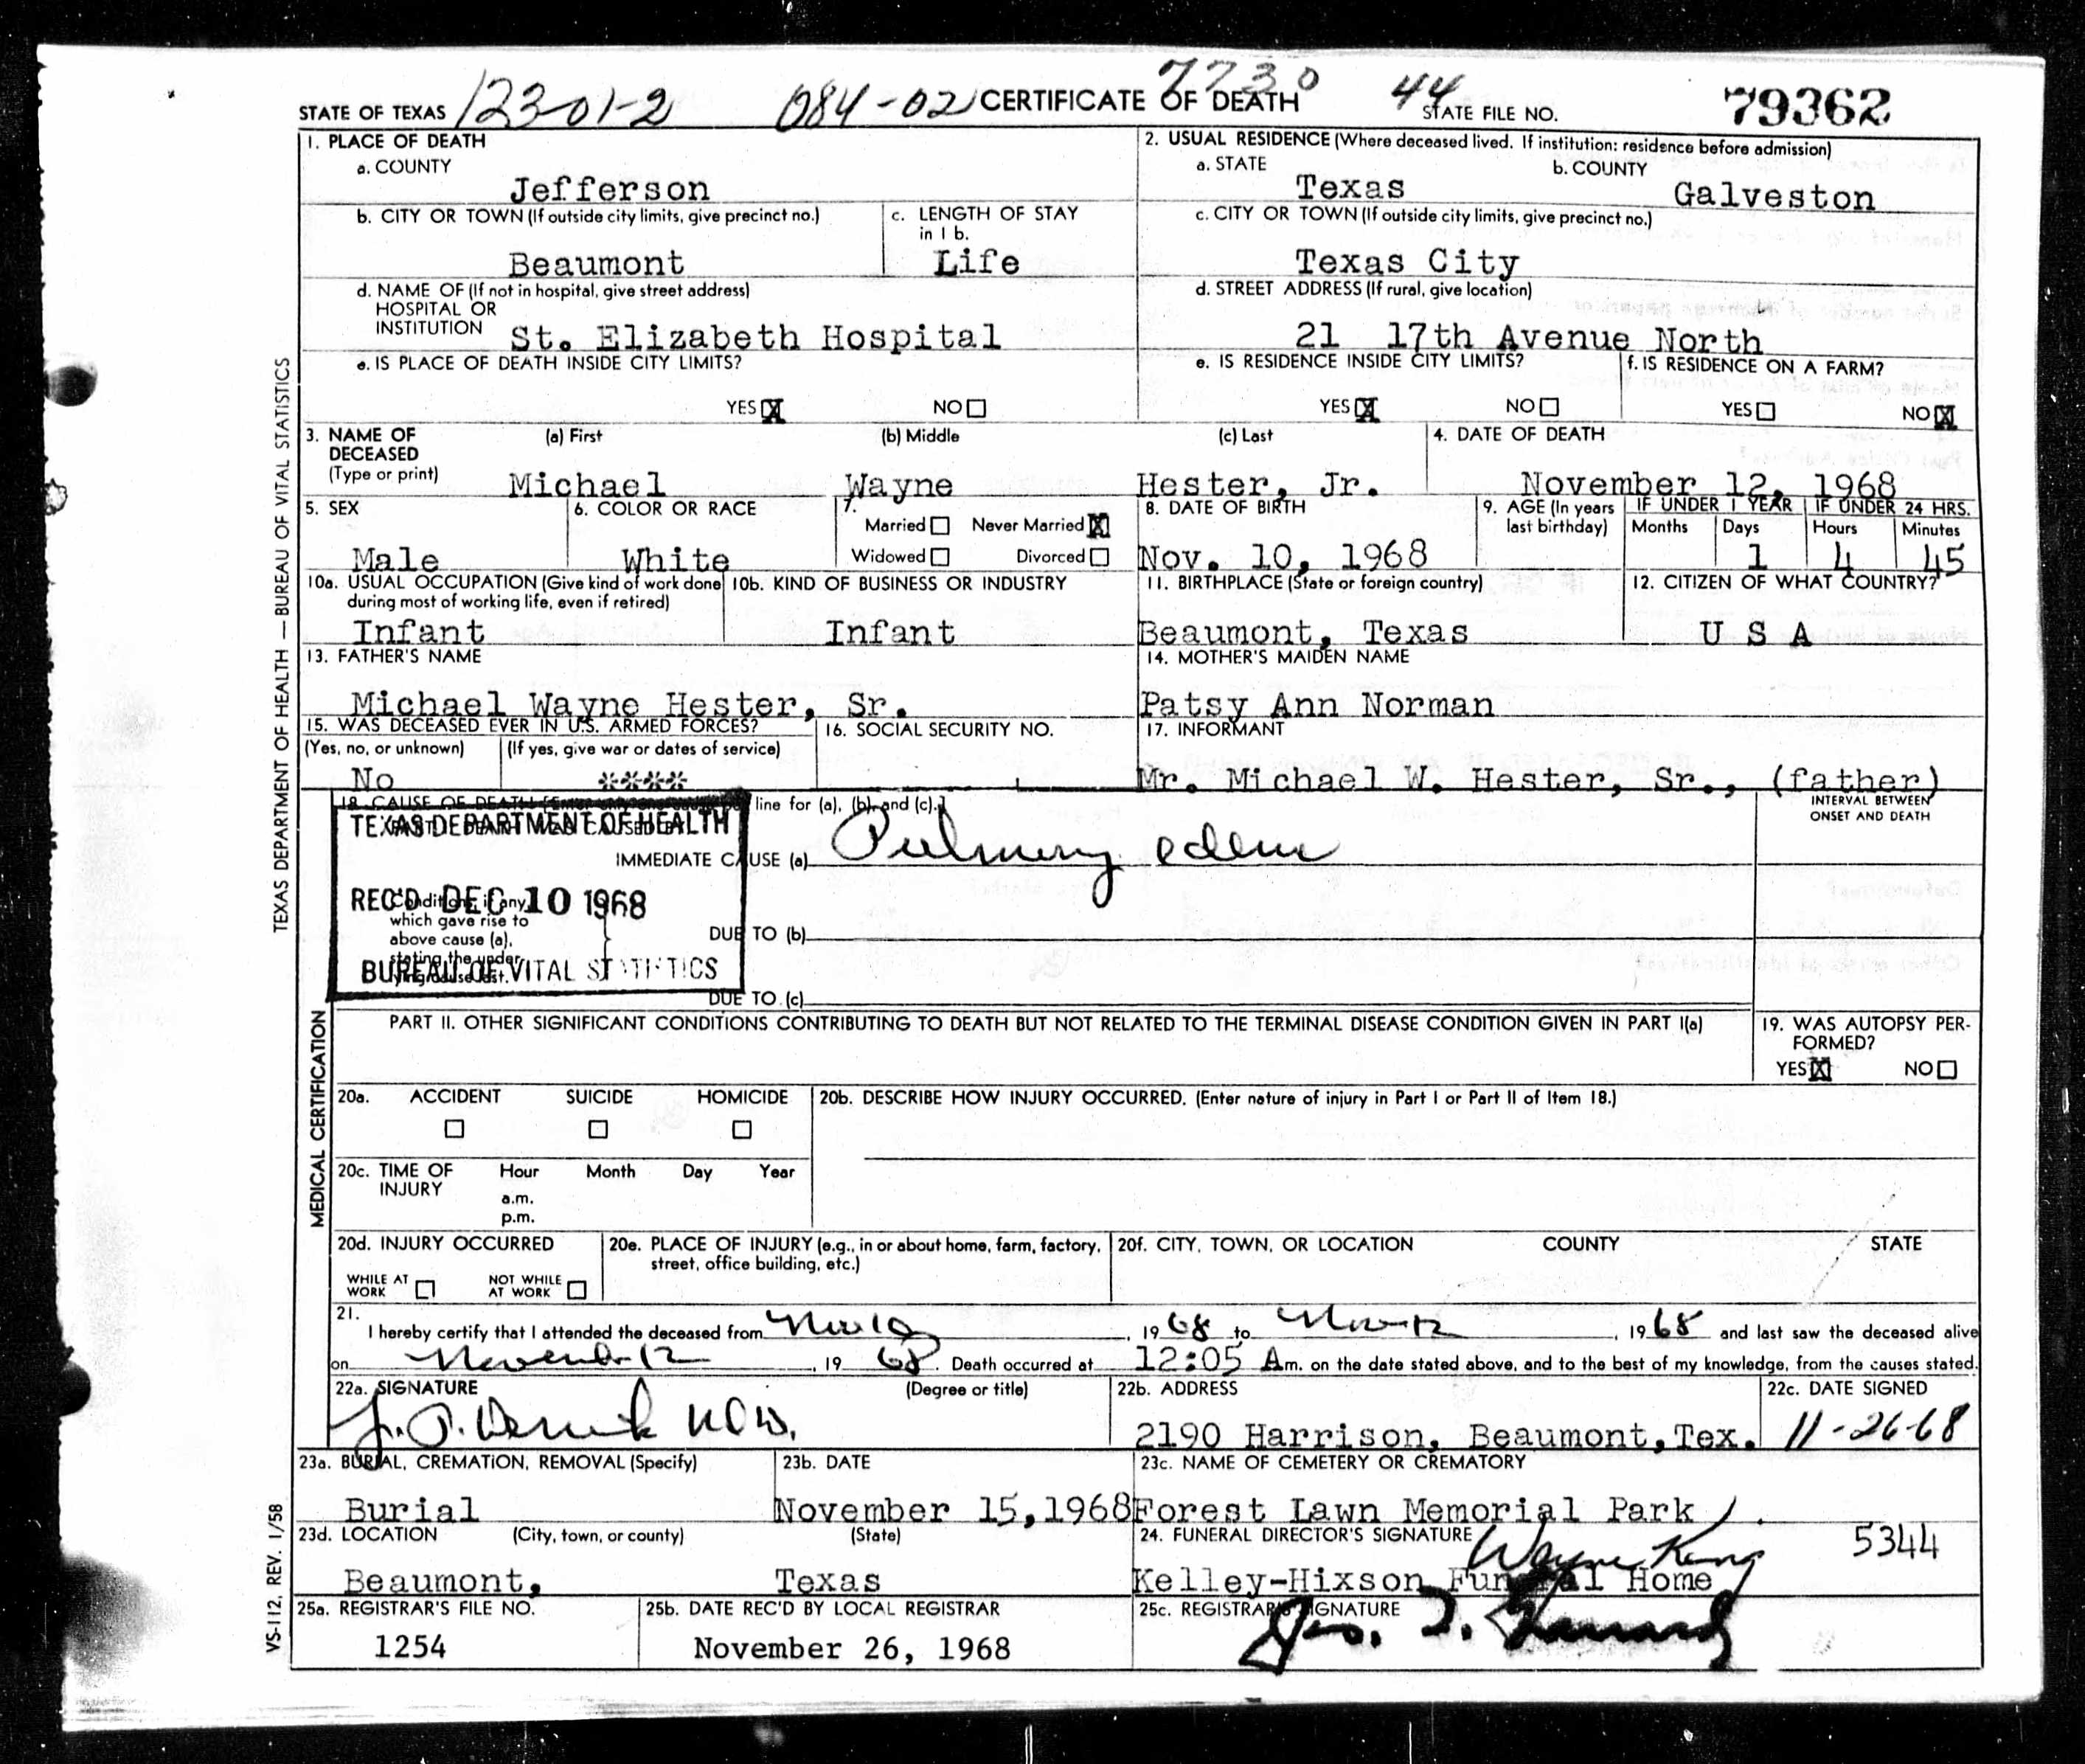 STATE OF TEXAS 123-01-2 084-02 CERTIFICATE OF DEATH 7730 44 STATE FILE NO. 79362
1. PLACE OF DEATH
a. COUNTY
Jefferson
2. USUAL RESIDENCE (Where deceased lived. If institution: residence before admission)
a. STATE
Texas
b. COUNTY
Galveston
b. CITY OR TOWN (If outside city limits, give precinct no.)
Beaumont
c. LENGTH OF STAY
in 1 b.
Life
c. CITY OR TOWN (If outside city limits, give precinct no.)
Texas City
d. NAME OF (If not in hospital, give street address)
HOSPITAL OR
INSTITUTION St. Elizabeth Hospital
d. STREET ADDRESS (If rural, give location)
21 17th Avenue North
e. IS PLACE OF DEATH INSIDE CITY LIMITS?
YES X NO
e. IS RESIDENCE INSIDE CITY LIMITS?
YES X NO
f. IS RESIDENCE ON A FARM?
YES NO X
3. NAME OF
DECEASED
(Type or print)
(a) First
Michael
(b) Middle
Wayne
(c) Last
Hester, Jr.
4. DATE OF DEATH
November 12, 1968
5. SEX
Male
6. COLOR OR RACE
White
7.
Married Never Married X
Widowed Divorced
8. DATE OF BIRTH
Nov. 10, 1968
9. AGE (In years
last birthday)
IF UNDER 1 YEAR
Months Days
1
IF UNDER 24 HRS.
Hours Minutes
4 45
10a. USUAL OCCUPATION (Give kind of work done
during most of working life, even if retired)
Infant
10b. KIND OF BUSINESS OR INDUSTRY
Infant
11. BIRTHPLACE (State or foreign country)
Beaumont, Texas
12. CITIZEN OF WHAT COUNTRY?
U S A
13. FATHER'S NAME
Michael Wayne Hester, Sr.
14. MOTHER'S MAIDEN NAME
Patsy Ann Norman
15. WAS DECEASED EVER IN U.S. ARMED FORCES?
(Yes, no, or unknown) (If yes, give war or dates of service)
No ****
16. SOCIAL SECURITY NO.
17. INFORMANT
Mr. Michael W. Hester, Sr., (father)
18. CAUSE OF DEATH line for (a), (b), and (c).]
TEXAS DEPARTMENT OF HEALTH
REC'D DEC 10 1968
BUREAU OF VITAL STATISTICS
IMMEDIATE CAUSE (a) Pulmonary edema
INTERVAL BETWEEN
ONSET AND DEATH
Conditions, if any,
which gave rise to
above cause (a),
stating the under-
lying cause last.
DUE TO (b)
DUE TO (c)
PART II. OTHER SIGNIFICANT CONDITIONS CONTRIBUTING TO DEATH BUT NOT RELATED TO THE TERMINAL DISEASE CONDITION GIVEN IN PART I(a)
19. WAS AUTOPSY PER-
FORMED?
YES X NO
20a. ACCIDENT SUICIDE HOMICIDE
20b. DESCRIBE HOW INJURY OCCURRED. (Enter nature of injury in Part I or Part II of Item 18.)
20c. TIME OF
INJURY
Hour Month Day Year
a.m.
p.m.
20d. INJURY OCCURRED
WHILE AT
WORK
NOT WHILE
AT WORK
20e. PLACE OF INJURY (e.g., in or about home, farm, factory,
street, office building, etc.)
20f. CITY, TOWN, OR LOCATION COUNTY STATE
21.
I hereby certify that I attended the deceased from Nov 10, 1968 to Nov 12, 1968 and last saw the deceased alive
on November 12, 1968. Death occurred at 12:05 Am. on the date stated above, and to the best of my knowledge, from the causes stated.
22a. SIGNATURE (Degree or title)
22b. ADDRESS
2190 Harrison, Beaumont, Tex.
22c. DATE SIGNED
11-26-68
23a. BURIAL, CREMATION, REMOVAL (Specify)
Burial
23b. DATE
November 15, 1968
23c. NAME OF CEMETERY OR CREMATORY
Forest Lawn Memorial Park
23d. LOCATION (City, town, or county) (State)
Beaumont, Texas
24. FUNERAL DIRECTOR'S SIGNATURE Wayne King 5344
Kelley-Hixson Funeral Home
25a. REGISTRAR'S FILE NO.
1254
25b. DATE REC'D BY LOCAL REGISTRAR
November 26, 1968
25c. REGISTRAR'S SIGNATURE
TEXAS DEPARTMENT OF HEALTH — BUREAU OF VITAL STATISTICS
MEDICAL CERTIFICATION
VS-112, REV. 1/58